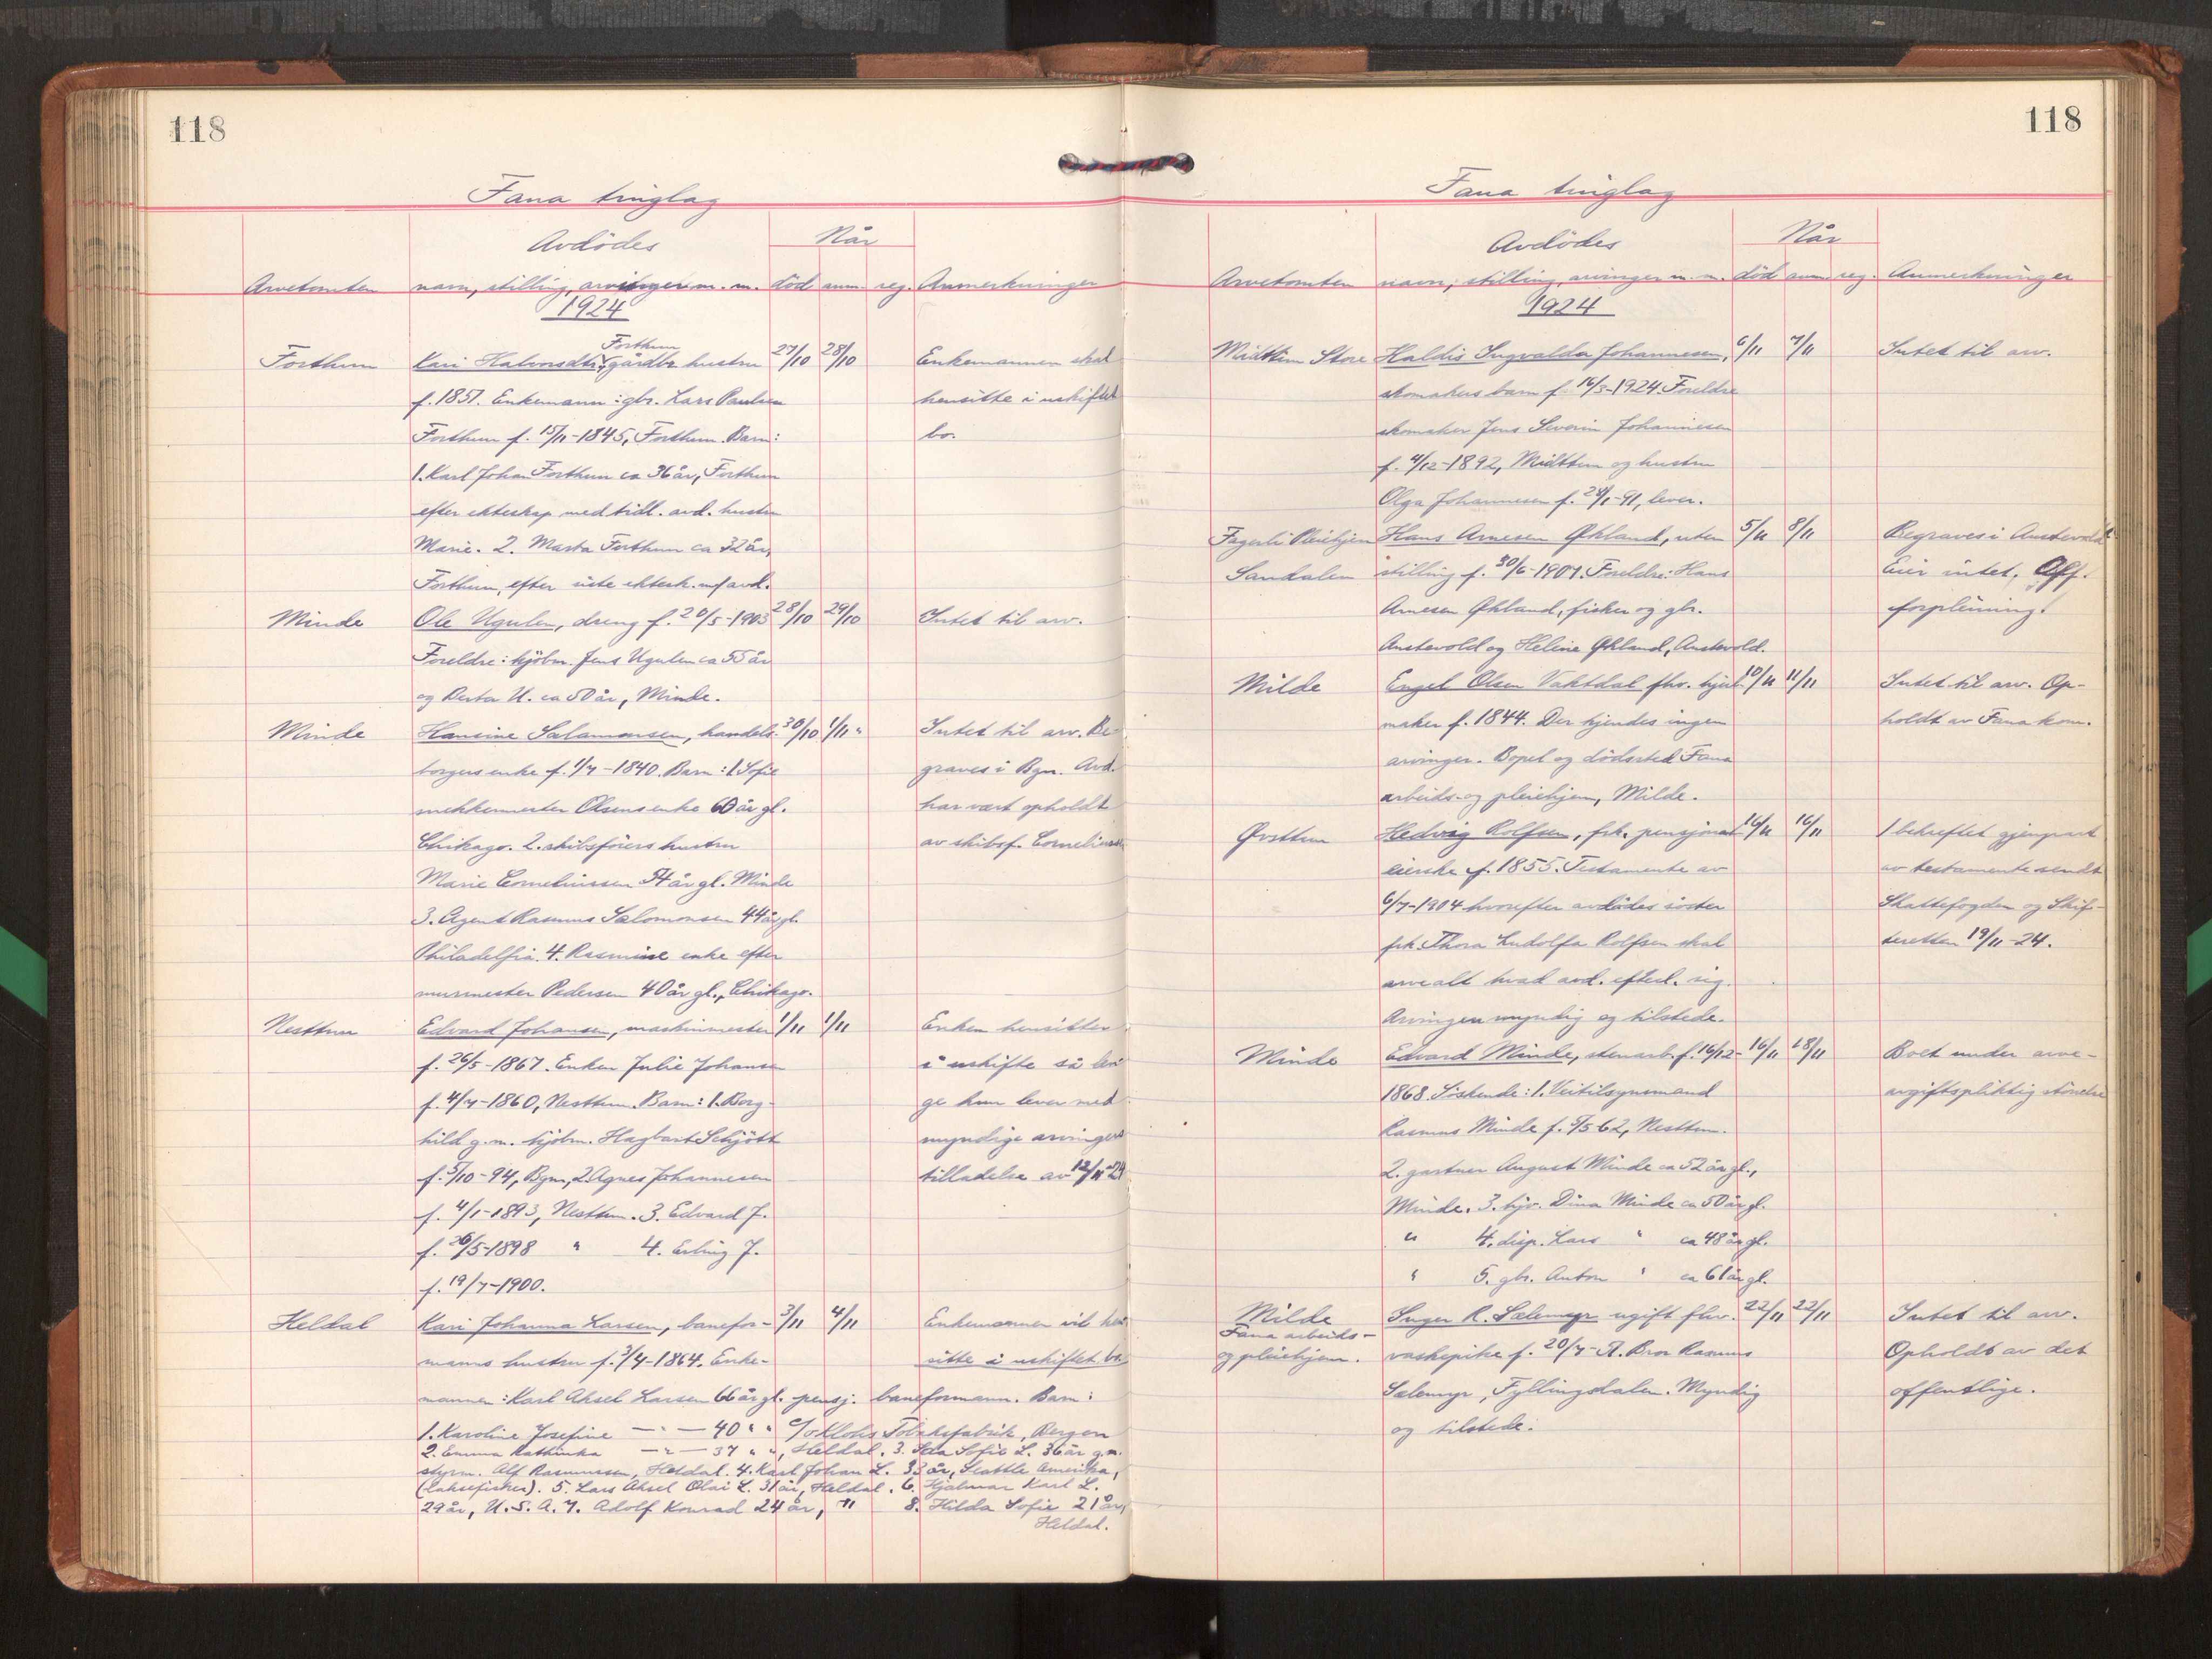 118
Fana tinglag
Avdödes
Når
Arvetomten navn, stilling, arvinger m. m. död anm. reg. Anmerkninger
1924
Forthun
Forthun Kari Halvorsdtr. gårdbr. hustru 27/10 28/10 Enkemannen skal
f. 1851. Enkemann: gbr. Lars Paulsen hensitte i uskiftet
Forthun f. 15/11-1845, Forthun. Barn: bo.
1. Karl Johan Forthun ca 36 år, Forthun
efter ekteskap med tidl. avd. hustru
Marie. 2. Marta Forthun ca 32 år,
Forthun, efter siste ektesk. m/ avd.
Minde Ole Ugulen, dreng f. 20/5-1903 28/10 29/10 Intet til arv.
Foreldre: kjöbm. Jens Ugulen ca 55 år
og Berta U. ca 50 år, Minde.
Minde Hansine Salamonsen, handels- 30/10 1/11 Intet til arv. Be-
borgers enke f. 1/7-1840. Barn: 1. Sofie graves i Bgn. Avd.
mekkemester Olsens enke 60 år gl. har vært opholdt
Chikago. 2. skibsförers hustru av skibsf. Corneliussen
Marie Corneliussen 54 år gl. Minde
3. Agent Rasmus Salomonsen 44 år gl.
Philadelfia. 4. Rasmine enke efter
murmester Pedersen 40 år gl., Chikago.
Nesttun Edvard Johansen, maskinmester 1/11 1/11 Enken hensitter
f. 26/5-1867. Enken Julie Johansen i uskifte så len-
f. 4/7-1860, Nesttun. Barn: 1. Borg- ge hun lever med
hild g. m. kjöbm. Hagbart Schjött myndige arvingers
f. 5/10-94, Bgn, 2. Agnes Johannesen tilladelse av 12/11-24
f. 4/1-1893, Nesttun. 3. Edvard J.
f. 26/5-1898 " 4. Erling J.
f. 19/7-1900.
Heldal Kari Johanna Larsen, banefor- 3/11 4/11 Enkemannen vil hen
manns hustru f. 3/4-1864. Enke- sitte i uskiftet bo
mannen: Karl Aksel Larsen 66 år gl. pensj. baneformann. Barn:
1. Karoline Josefine — " — 40 " " c/o Tobaksfabrik, Bergen
2. Emma Kathinka — " — 37 " ", Heldal. 3. Sofie L. 36 år g.m.
styrm. Alf Rasmussen, Heldal. 4. Karl Johan L. 33 år, Seattle Amerika,
(laksefisker). 5. Lars Aksel Olai L. 31 år, Heldal. 6. Hjalmar Karl L.
29 år, U.S.A. 7. Adolf Konrad 24 år, " 8. Hilda Sofie 21 år,
Heldal.
118
Fana tinglag
Avdödes
Når
Arvetomten navn, stilling, arvinger m. m. död anm. reg. Anmerkninger
1924
Midttun Store Haldis Ingvalda Johannesen, 6/11 7/11 Intet til arv.
skomakers barn f. 16/3-1924. Foreldre
skomaker Jens Severin Johannesen
f. 4/12-1892, Midttun og hustru
Olga Johannesen f. 24/1-91, lever.
Fagerli Pleiehjem Hans Arnesen Økland, uten 5/11 8/11 Begraves i Austevold
Sandalen stilling f. 30/6-1907. Foreldre: Hans Eier intet. Off.
Arnesen Økland, fisker og gbr. forpleining.
Austevold og Heline Økland, Austevold.
Milde Engel Olsen Vaktdal fhv. hjul- 10/11 11/11 Intet til arv. Op-
maker f. 1844. Der kjendes ingen holdt av Fana kom.
arvinger. Bopel og dödssted Fana
arbeids- og pleiehjem, Milde.
Øvsttun Hedvig Rolfsen, frk. pensjonat 16/11 16/11 1 bekreftet gjenpart
eierske f. 1855. Testamente av av testamente sendt
6/7-1904 hvorefter avdödes söster Skattefogden og Skif-
frk. Thora Ludolfa Rolfsen skal teretten 19/11-24.
arve alt hvad avd. efterl. sig.
Arvingen myndig og tilstede.
Minde Edvard Minde, stenarb. f. 16/12- 16/11 18/11 Boet under arve-
1868. Söskende: 1. Veitilsynsmand avgiftspliktig störrelse
Rasmus Minde f. 5/5 62, Nesttun.
2. gartner August Minde ca 52 år gl.,
Minde. 3. hjv. Dina Minde ca 50 år gl.
" 4. disp. Lars " ca 48 år gl.
" 5. gbr. Anton " ca 61 år gl.
Milde Inger R. Sælemyr ugift fhv. 22/11 22/11 Intet til arv.
Fana arbeids-
og pleiehjem. vaskepike f. 20/7- Bror Rasmus Opholdt av det
Sælemyr, Fyllingsdalen. Myndig offentlige.
og tilstede.